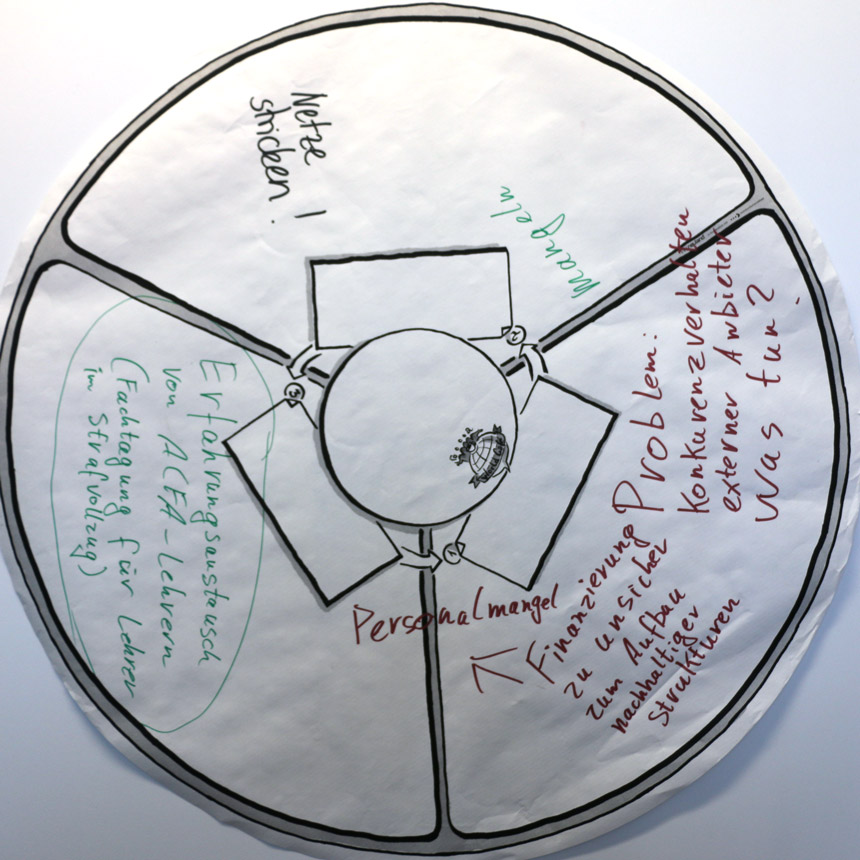 Netze
stricken!
mangeln
Problem:
Konkurenzverhalten
externer Anbieter
Was tun?
Finanzierung
zu unsicher
zum Aufbau
nachhaltiger
Strukturen
Personalmangel
Erfahrungsaustausch
von ACFA-Lehrern
(Fachtagung für Lehrer
im Strafvollzug)
2
3
1